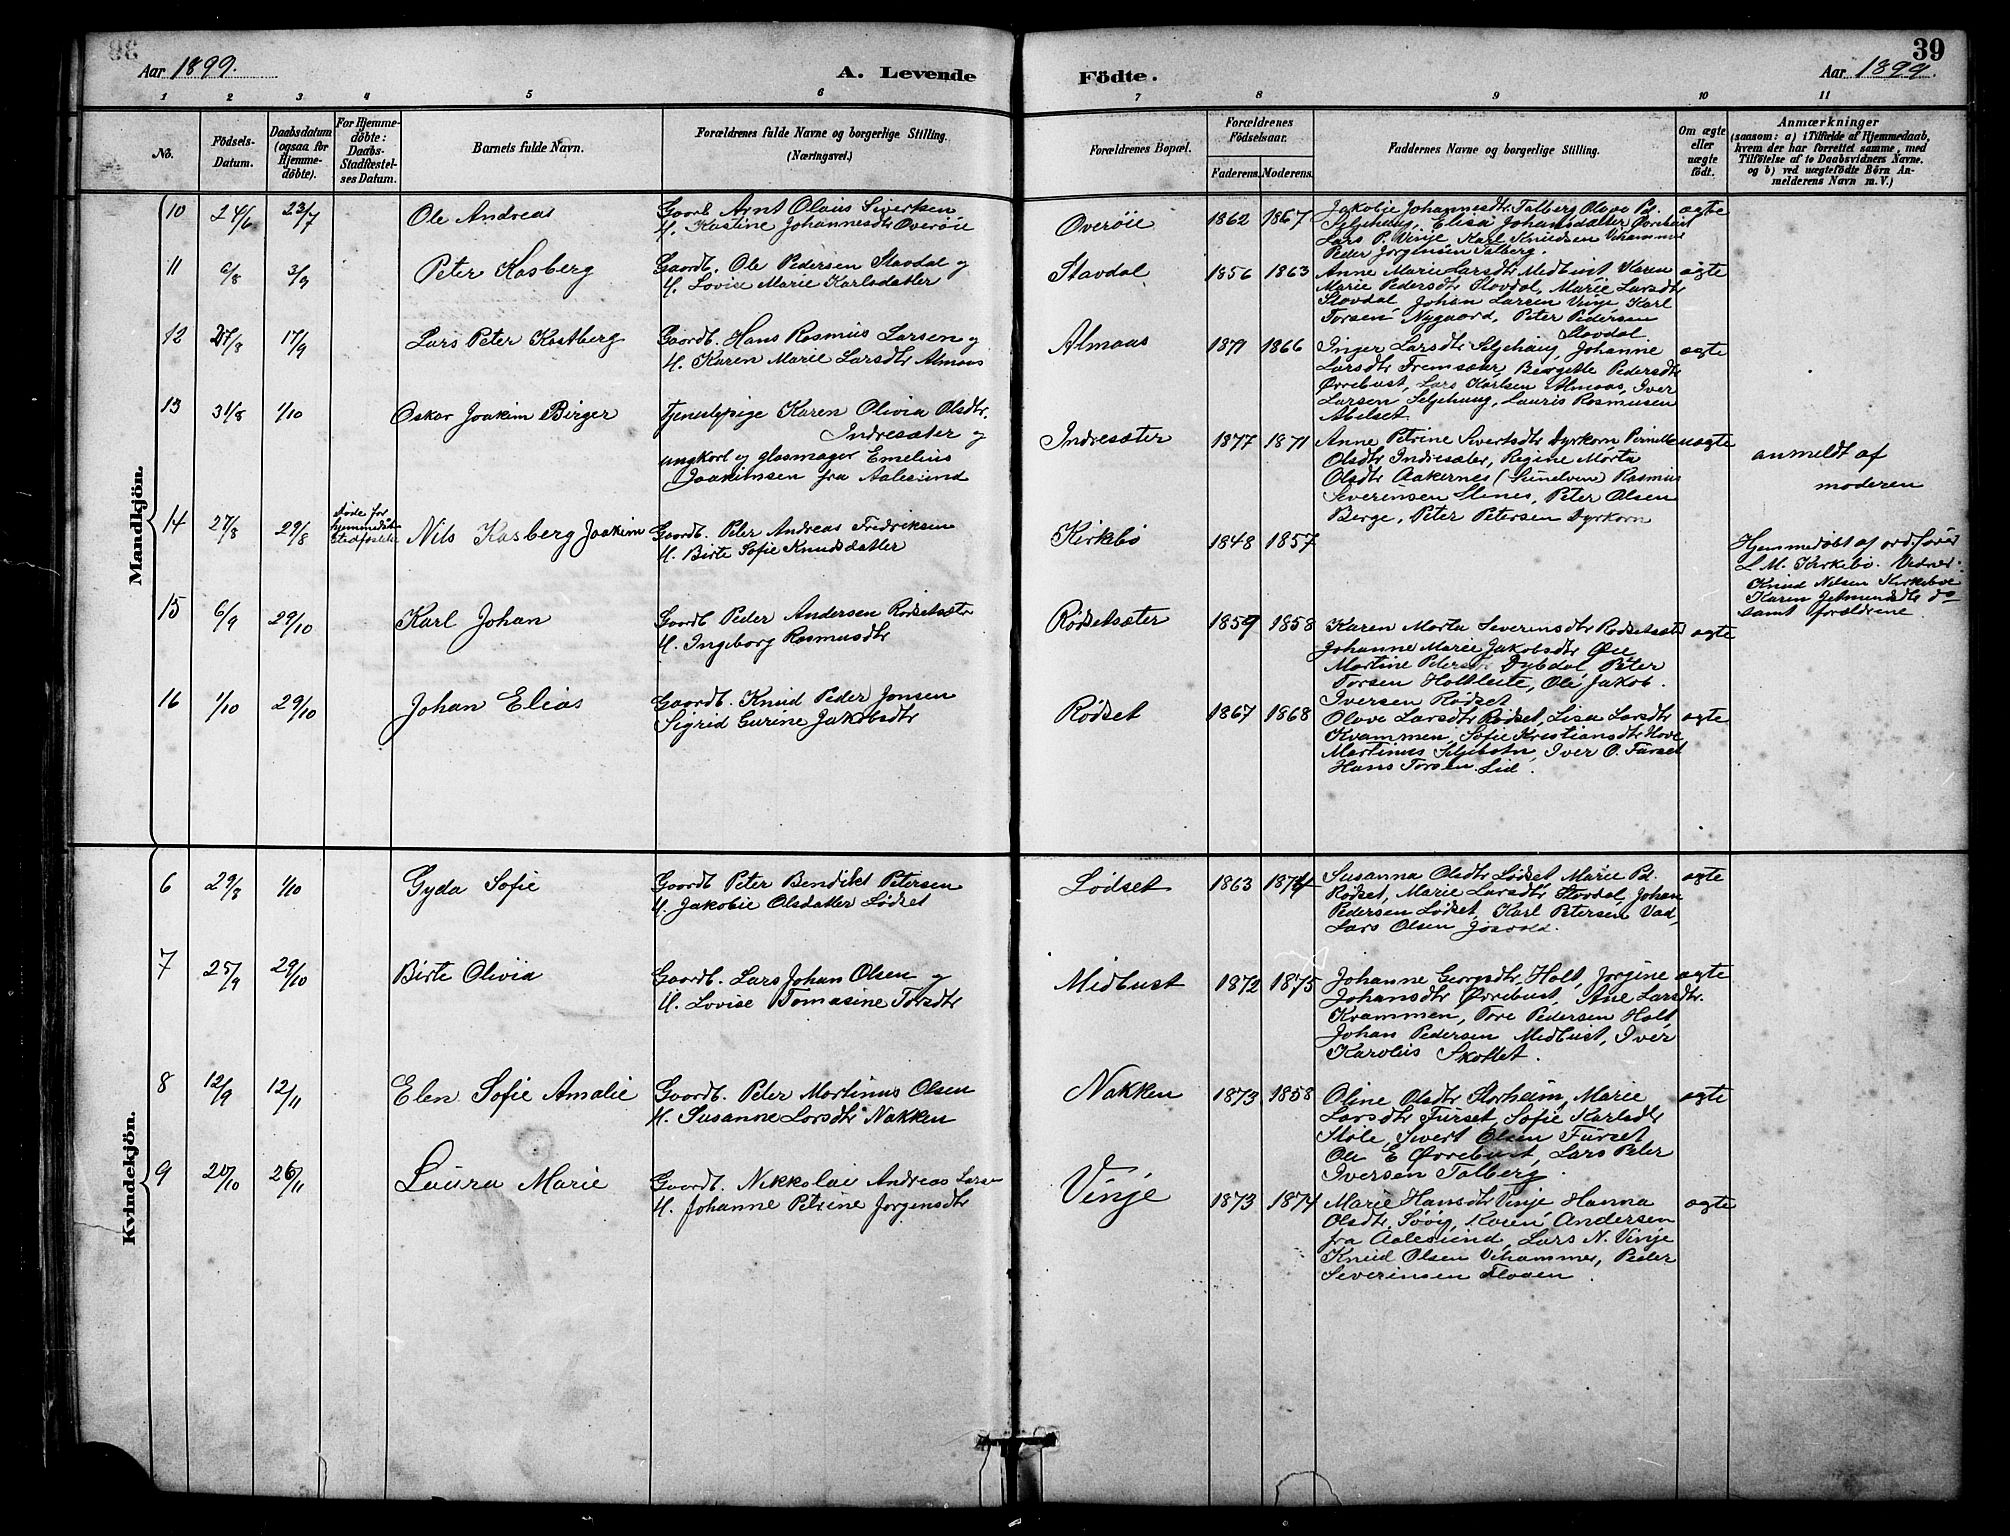 39
Aar 1899.
A. Levende Fødte.
Aar 1899.
1 2 3 4 5 6 7 8 9 10 11
No.
Födsels-Datum.
Daabsdatum (ogsaa for Hjemme-döbte).
For Hjemme-döbte: Daabs-Stadfæstel-ses Datum.
Barnets fulde Navn.
Forældrenes fulde Navne og borgerlige Stilling. (Næringsvei.)
Forældrenes Bopæl.
Forældrenes Födselsaar.
Faderens. Moderens.
Faddernes Navne og borgerlige Stilling.
Om ægte eller uægte födt.
Anmærkninger
(saasom: a) i Tilfælde af Hjemmedaab,
hvem der har forrettet samme, med
Tilföielse af to Daabsvidners Navne.
og b) ved uægtefödte Börn An-
melderens Navn m. V.)
Mandkjön.
10 24/6 23/7 Ole Andreas
Gaardb. Arnt Olaus Sivertsen
H. Kastine Johannesdtr Overöie
Overöie 1862 1867
Jakobie Johannesdtr Talberg Olave P.
Seljehaug, Elisa Johansdatter Ørrebust
Lars P. Vinje Karl Knudsen Vihammer
Peder Jørgensen Talberg.
ægte
11 6/8 3/9 Peter Kasberg
Gaardb. Ole Pedersen Stavdal og
H. Lovise Marie Karlsdatter
Stavdal 1856 1863
Anne Marie Larsdtr Midbust Karen
Marie Pedersdtr Stovdal, Marie Larsdtr
Stovdal Johan Larsen Vinje Karl
Torsen Nygaard, Peter Pedersen
Stovdal
ægte
12 27/8 17/9 Lars Peter Kastberg
Gaardb. Hans Rasmus Larsen og
H. Karen Marie Larsdtr Almaas
Almaas 1871 1866
Inger Larsdtr Seljehaug, Johanne
Larsdtr Fremsæter, Bergitte Pedersdtr
Ørrebust, Lars Karlsen Almaas, Iver
Larsen Seljehaug, Lauris Rasmusen
Abelset
ægte
13 31/8 1/10 Oskar Joakim Birger
Tjenestepige Karen Olivia Olsdtr.
Indresæter og
ungkarl og glasmager Emelius
Joakimsen fra Aalesund
Indresæter 1877 1871
Anne Petrine Sivertsdtr Dyrkorn Pernille
Olsdtr Indresæter, Regine Marta
Olsdtr Aakernes (Sunelven) Rasmus
Severensen Stenes, Peter Olsen
Berge, Peter Petersen Dyrkorn
uægte
anmeldt af
moderen
14 27/8 29/8
døde før
hjemmedåb
stadfæstet
Nils Kasberg Joakim
Gaardb. Peter Andreas Fredriksen
H. Birte Sofie Knudsdatter
Kirkebö 1848 1857
Hjemmedöbt af ordförer
L M. Kirkebö. Vidner.
Knud Nilsen Kirkeboe
Karen Jetmundsdtr do
samt forældrene
15 6/9 29/10 Karl Johan
Gaardb Peder Andersen Rødsetsæter
H. Ingeborg Rasmusdtr
Rødsetsæter 1859 1858
Karen Marta Severinsdtr Rødsetsæter
Johanne Marie Jakobsdtr Øie
Martine Petersdtr Dybdal, Peter
Torsen Holtleite, Ole Jakob.
Iversen Rødset
ægte
16 1/10 29/10 Johan Elias
Gaardb. Knud Peder Jonsen
Sigrid Gurine Jakobsdtr
Rødset 1867 1868
Olave Larsdtr Rødset, Lisa Larsdtr
Kvammen, Sofie Kristiansdtr Hove
Martinus Seljebotn, Iver O. Furset
Hans Torsen Lid.
ægte
Kvindekjön.
6 29/8 1/10 Gyda Sofie
Gaardb Peter Bendikt Petersen
H. Jakobie Olsdatter Lødset
Lødset 1863 1874
Susanna Olsdtr Lødset Marie P.
Rødset, Marie Larsdtr Stovdal, Johan
Pedersen Lødset, Karl Petersen Vad,
Lars Olsen Jøsvold.
ægte
7 25/9 29/10 Birte Olivia
Gaardb. Lars Johan Olsen og
H. Lovise Tomasine Torsdtr
Midbust 1872 1875
Johanne Georgsdtr Holt, Jørgine
Johansdtr Ørrebust, Ane Larsdtr.
Kvammen, Tore Pedersen Holt
Johan Pedersen Midbust, Iver
Karolus Skottet.
ægte
8 12/9 12/11 Elen Sofie Amalie
Gaardb. Peter Martinus Olsen
H. Susanne Larsdtr Nakken
Nakken 1873 1858
Oline Olsdtr Storheim, Marie
Larsdtr Furset, Sofie Karlsdtr
Støle, Sivert Olsen Furset
Ole E Ørrebust, Lars Peter
Iversen Talberg.
ægte
9 20/10 26/11 Laura Marie
Gaardb. Nikkolai Andreas Larsen
H. Johanne Petrine Jørgensdtr
Vinje 1873 1874
Marie Hansdtr Vinje Hanna
Olsdtr Søvig, Andersen
fra Aalesund, Lars N. Vinje
Knud Olsen Vihammer, Peder
Severinsen Floven.
ægte